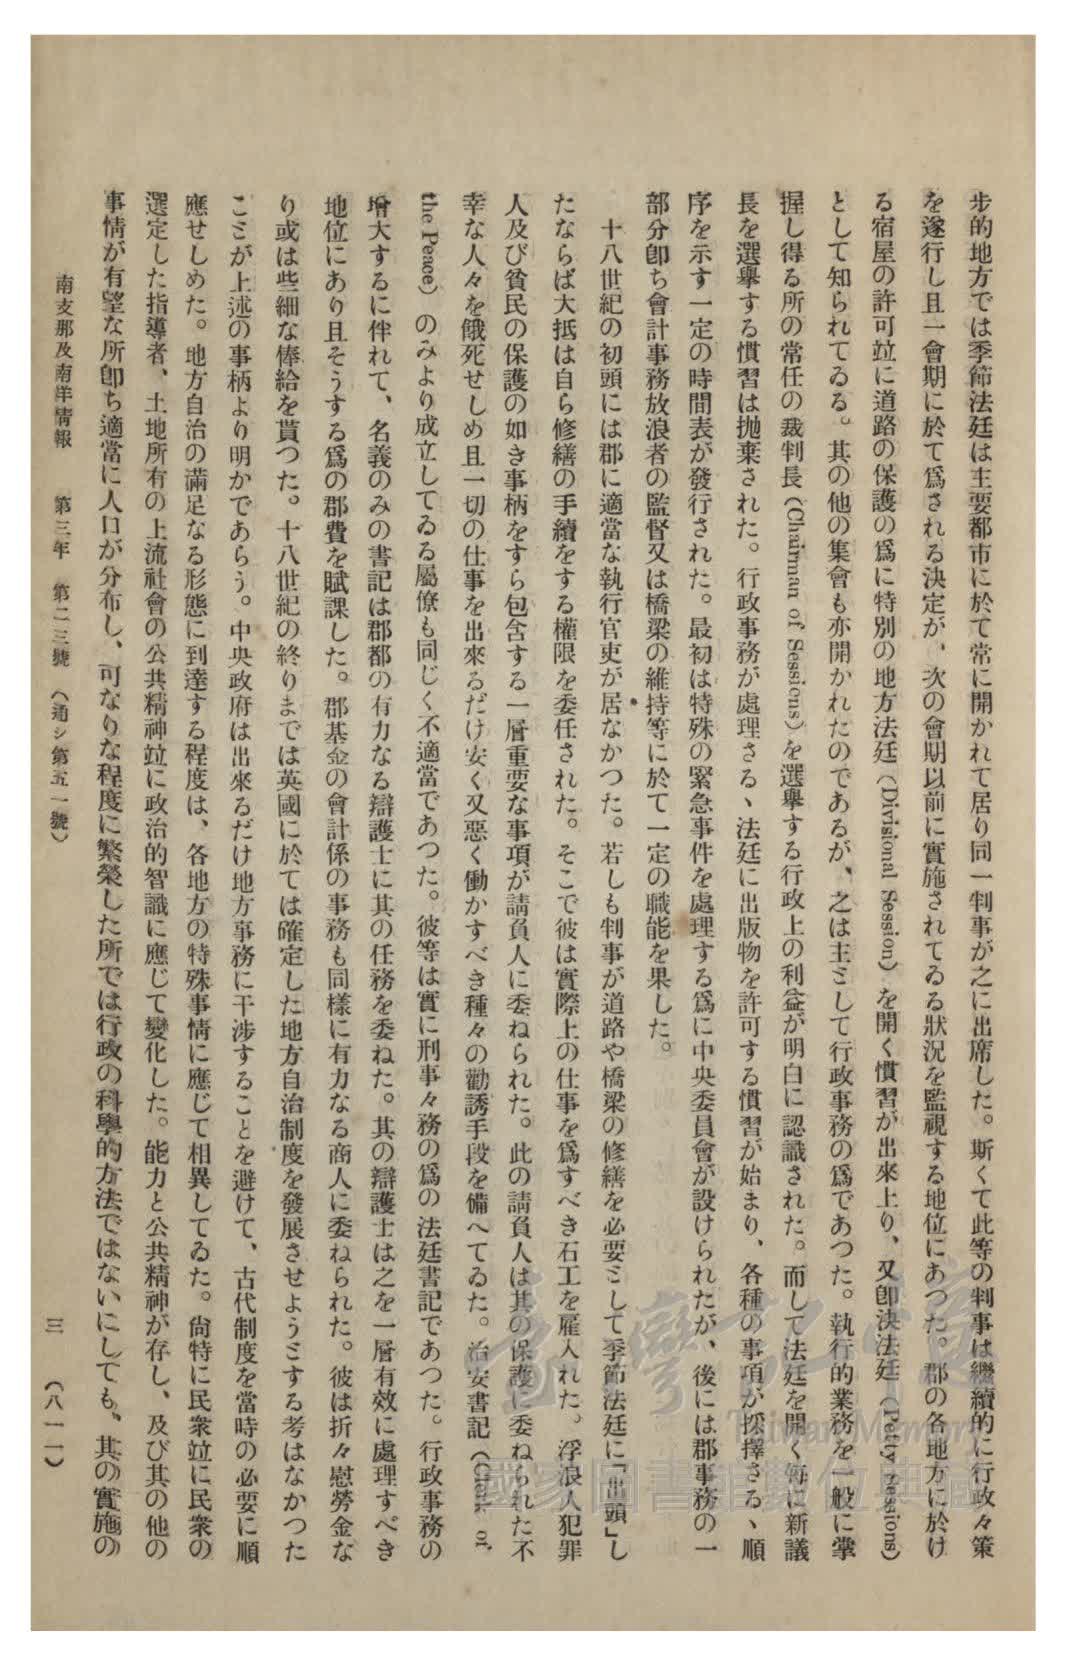 步的地方では季節法廷は主要都市に於て常に開かれて居り同一判事が之に出席した。斯くて此等の判事は繼續的に行政々策
を遂行し且一會期に於て爲される決定が、次の會期以前に實施されてゐる狀況を監視する地位にあつた。郡の各地方に於け
る宿屋の許可竝に道路の保護の爲に特別の地方法廷（Divisional Session）を開く慣習が出來上り、又卽決法廷（Petty Sessions）
として知られてゐる。其の他の集會も亦開かれたのであるが、之は主として行政事務の爲であつた。執行的業務を一般に掌
握し得る所の常任の裁判長（Chairman of Sessions）を選擧する行政上の利益が明白に認識された。而して法廷を開く每に新議
長を選擧する慣習は抛棄された。行政事務が處理さるゝ法廷に出版物を許可する慣習が始まり、各種の事項が採擇さるゝ順
序を示す一定の時間表が發行された。最初は特殊の緊急事件を處理する爲に中央委員會が設けられたが、後には郡事務の一
部分卽ち會計事務放浪者の監督又は橋梁の維持等に於て一定の職能を果した。
十八世紀の初頭には郡に適當な執行官吏が居なかつた。若しも判事が道路や橋梁の修繕を必要として季節法廷に「出頭」し
たならば大抵は自ら修繕の手續をする權限を委任された。そこで彼は實際上の仕事を爲すべき石工を雇入れた。浮浪人犯罪
人及び貧民の保護の如き事柄をすら包含する一層重要な事項が請負人に委ねられた。此の請負人は其の保護に委ねられた不
幸な人々を餓死せしめ且一切の仕事を出來るだけ安く又惡く働かすべき種々の勸誘手段を備へてゐた。治安書記（Clerk of
the Peace）のみより成立してゐる屬僚も同じく不適當であつた。彼等は實に刑事々務の爲の法廷書記であつた。行政事務の
增大するに伴れて、名義のみの書記は郡都の有力なる辯護士に其の任務を委ねた。其の辯護士は之を一層有效に處理すべき
地位にあり且そうする爲の郡費を賦課した。郡基金の會計係の事務も同樣に有力なる商人に委ねられた。彼は折々慰勞金な
り或は些細な俸給を貰つた。十八世紀の終りまでは英國に於ては確定した地方自治制度を發展させようとする考はなかつた
ことが上述の事柄より明かであらう。中央政府は出來るだけ地方事務に干渉することを避けて、古代制度を當時の必要に順
應せしめた。地方自治の滿足なる形態に到達する程度は、各地方の特殊事情に應じて相異してゐた。尙特に民衆竝に民衆の
選定した指導者、土地所有の上流社會の公共精神竝に政治的智識に應じて變化した。能力と公共精神が存し、及び其の他の
事情が有望な所卽ち適當に人口が分布し、可なりな程度に繁榮した所では行政の科學的方法ではないにしても、其の實施の
南支那及南洋情報　第三年　第二三號　（通シ第五一號）　三　（八一一）
臺灣記憶
Taiwan Memory
國家圖書館數位典藏